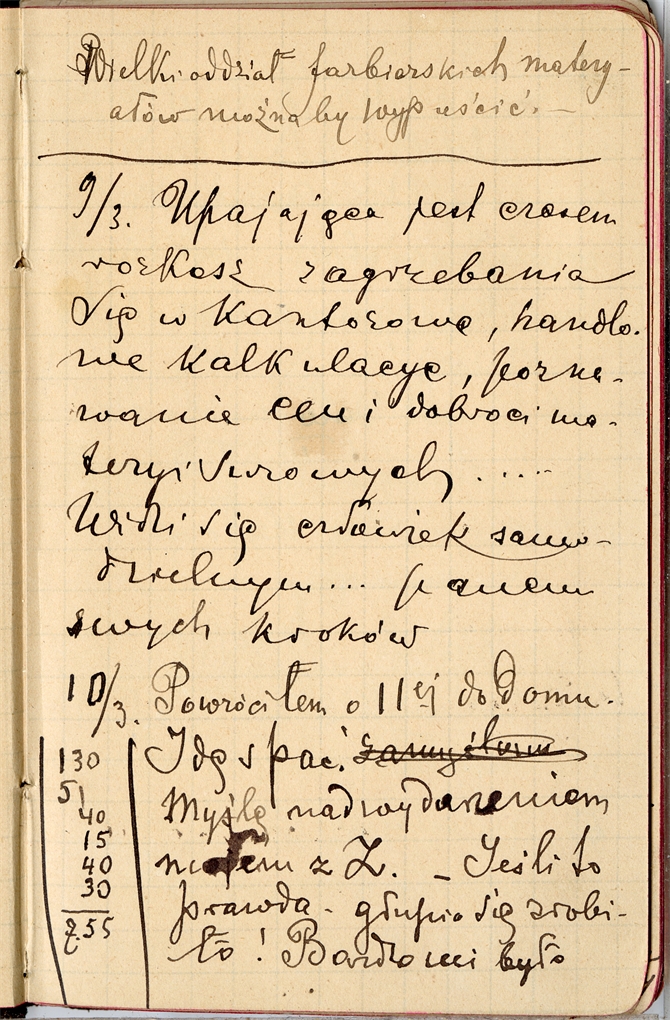 Wielki oddział farbierskich matery-
ałów możnaby wypuścić. —
9/3. Upajająca jest czasem
rozkosz zagrzebania
się w kantorowe, handlo-
we kalkulacye, pozna-
wanie cen i dobroci ma-
teryi surowych . . . .
Widzi się człowiek samo-
dzielnym . . . panem
swych kroków
10/3. Powróciłem o 11ej do domu.
Idę spać.
Myślę nad wydarzeniem
mojem z Z. — Jeśli to
prawda - głupio się zrobi-
ło! Bardzo mi było
130
5
40
15
40
30
2.55